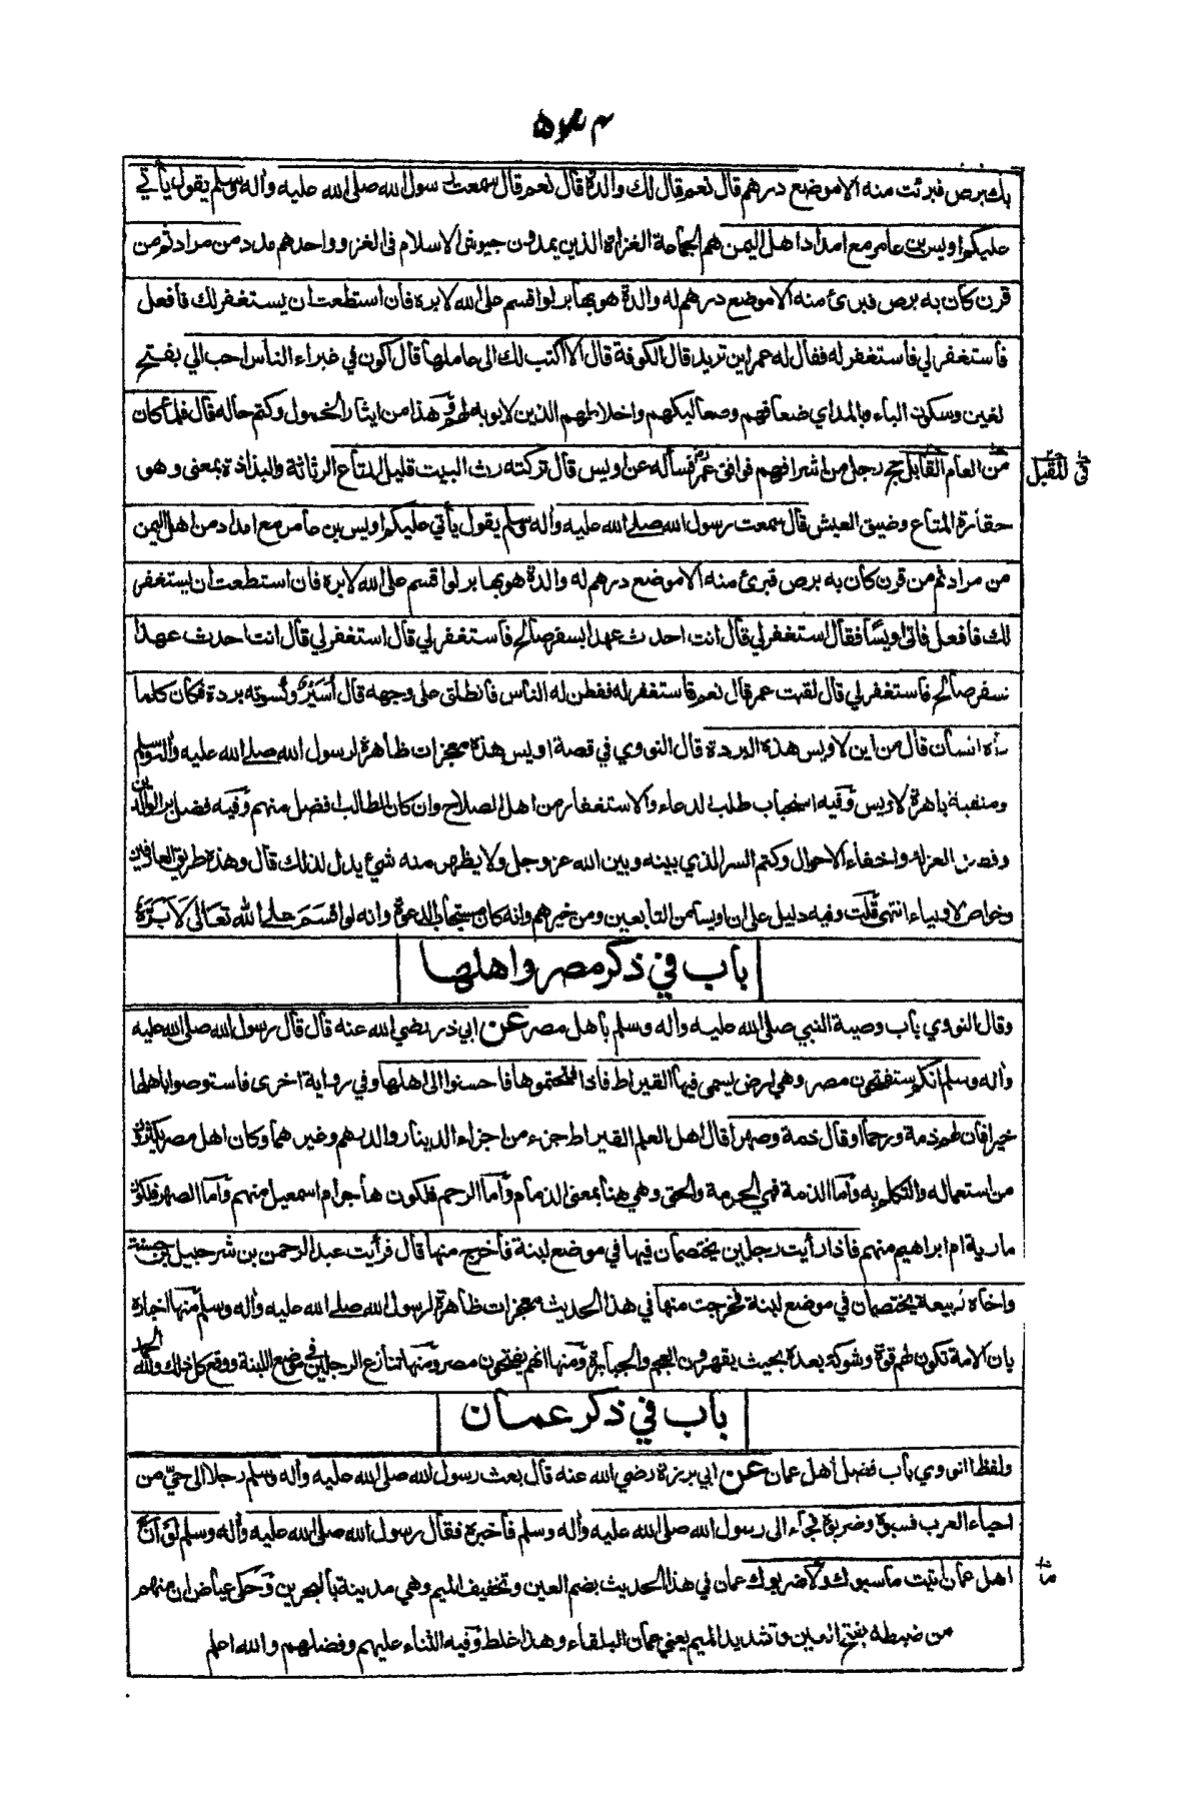 ۵۴۴
بك برص فبرئت منه الا موضع درهم قال نعم قال لك والدة قال نعم قال سمعت رسول الله صلى الله عليه وأله وسلم يقول يأتي
عليكم اويس بن عامر مع امداد اهل اليمن هم الجماعة الغزاة الذين يمدون جيوش الاسلام فى الغزو واحدهم مدد من مراد ثم من
قرن كان به برص فبرئ منه الا موضع درهم له والدة هو بها بر لو اقسم على الله لابره فان استطعت ان يستغفر لك فأفعل
فأستغفر لي فأستغفر له فقال له عمر اين تريد قال الكوفة قال الا اكتب لك الى عاملها قال اكون في غبراء الناس احب الي بفتح
لغين وسكون الباء وبالمد اي ضعافهم وصعاليكهم واخلاطهم الذين لا يوبه لهم وهذا من ايثار الخمول وكتم حاله قال فلما كان
من العام القابل حج رجل من اشرافهم فوافق عمر فسأله عن اويس قال تركته رث البيت قليل المتاع الرثاثة والبذاذة بمعنى وهو
فى المقبل
حقارة المتاع وضيق العيش قال سمعت رسول الله صلى الله عليه وأله وسلم يقول يأتي عليكم اويس بن عامر مع امداد من اهل اليمن
من مراد ثم من قرن كان به برص فبرئ منه الا موضع درهم له والدة هو بها بر لو اقسم على الله لابره فان استطعت ان يستغفر
لك فأفعل فاتى اويسًا فقال استغفر لي قال انت احدث عهدا بسفر صالح فأستغفر لي قال استغفر لي قال انت احدث عهدا
بسفر صالح فأستغفر لي قال لقيت عمر قال نعم فأستغفر له ففطن له الناس فأنطلق على وجهه قال أُسَيْرٌ وكسوته بردة فكان كلما
رأه انسان قال من اين لاويس هذه البردة قال النووي في قصة اويس هذه معجزات ظاهرة لرسول الله صلى الله عليه وأله وسلم
ومنقبة باهرة لاويس وفيه استحباب طلب الدعاء والاستغفار من اهل الصلاح وان كان الطالب افضل منهم وفيه فضل بر الوالدين
وفضل العزلة واخفاء الاحوال وكتم السر الذي بينه وبين الله عز وجل ولا يظهر منه شيء يدل لذلك قال وهذه طريق العارفين
وخواص الاولياء انتهى قلت وفيه دليل على ان اويسا من التابعين ومن خيرهم وانه كان مستجاب الدعوة وانه لو اقسَمَ على الله تعَالى لَأَبَرَّهُ
باب في ذكر مصر واهلها
وقال النووي باب وصية النبي صلى الله عليه وأله وسلم بأهل مصر عن ابي ذر رضي الله عنه قال قال رسول الله صلى الله عليه
وأله وسلم انكم ستفتحون مصر وهي ارض يسمى فيها القيراط فاذا افتحتموها فأحسنوا الى اهلها وفي رواية اخرى فاستوصوا باهلها
خيرا فأن لهم ذمة ورحما او قال ذمة وصهرا قال اهل العلم القيراط جزء من اجزاء الدينار والدرهم وغيرهما وكان اهل مصر يكثرون
من استعماله والتكلم به وأما الذمة فهي الحرمة والحق وهي هنا بمعنى الذمام وأما الرحم فلكون هاجر ام اسمعيل منهم وأما الصهر فلكون
مارية ام ابراهيم منهم فاذا رأيت رجلين يختصمان فيها في موضع لبنة فأخرج منها قال فرأيت عبد الرحمن بن شرحبيل بن حسنة
واخاه ربيعة يختصمان في موضع لبنة فخرجت منها في هذا الحديث معجزات ظاهرة لرسول الله صلى الله عليه وأله وسلم منها اخباره
بان الامة تكون لهم قوة وشوكة بعده بحيث يقهرون العجم والجبابرة ومنها انهم يفتحون مصر ومنها تنازع الرجلين في موضع اللبنة ووقع كل ذلك ولله الحمد
باب في ذكر عمان
ولفظ النووي باب فضل اهل عمان عن ابي برزة رضي الله عنه قال بعث رسول الله صلى الله عليه وأله وسلم رجلا الى حيّ من
احياء العرب فسبوه وضربوه فجاء الى رسول الله صلى الله عليه وأله وسلم فأخبره فقال رسول الله صلى الله عليه وأله وسلم لو أنّ
اهل عمان اتيت ما سبوك ولا ضربوك عمان في هذا الحديث بضم العين وتخفيف الميم وهي مدينة بالبحرين وحكى عياض ان منهم
ما
من ضبطه بفتح العين وتشديد الميم يعني عمان البلقاء وهذا غلط وفيه الثناء عليهم وفضلهم والله اعلم